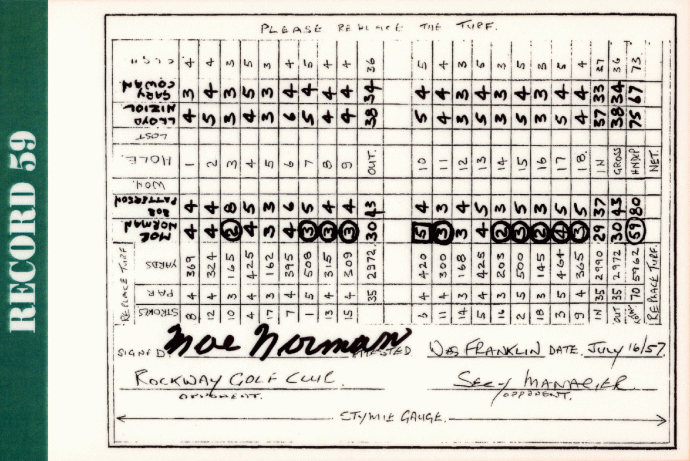 RECORD 59
PLEASE REPLACE THE TURF.
4 4 3 5 3 4 5 4 4 36 5 4 3 6 3 5 2 5 4 37 36 73
GARY COWAN 3 4 3 5 3 4 4 4 4 34 4 4 3 4 3 5 3 4 3 33 34 67
LLOYD NIZIOL 4 5 3 4 3 6 5 4 4 38 5 4 3 4 5 4 3 5 4 37 38 75
LOST
HOLE. 1 2 3 4 5 6 7 8 9 OUT. 10 11 12 13 14 15 16 17 18. IN GROSS HNDCP NET.
WON.
BOB PATTERSON 4 4 8 5 3 6 5 4 4 43 4 4 3 5 3 5 4 5 4 37 43 80
MOE NORMAN 4 4 2 4 3 4 3 3 3 30 5 3 3 4 2 3 2 4 3 29 30 59
YARDS 369 324 165 425 162 395 508 315 309 2972. 420 300 168 425 203 500 145 464 365 2990 2972 5962
PAR 4 4 3 4 3 4 5 4 4 35 4 4 3 4 3 5 3 5 4 35 35 70
STROKES 8 12 10 4 17 7 1 13 15 6 11 14 5 16 2 18 3 9 IN OUT
REPLACE TURF REPLACE TURF.
SIGNED Moe Norman ATTESTED WES FRANKLIN DATE. JULY 16/57.
ROCKWAY GOLF CLUB. SEC-Y MANAGER.
OPPONENT. OPPONENT.
STYMIE GAUGE.